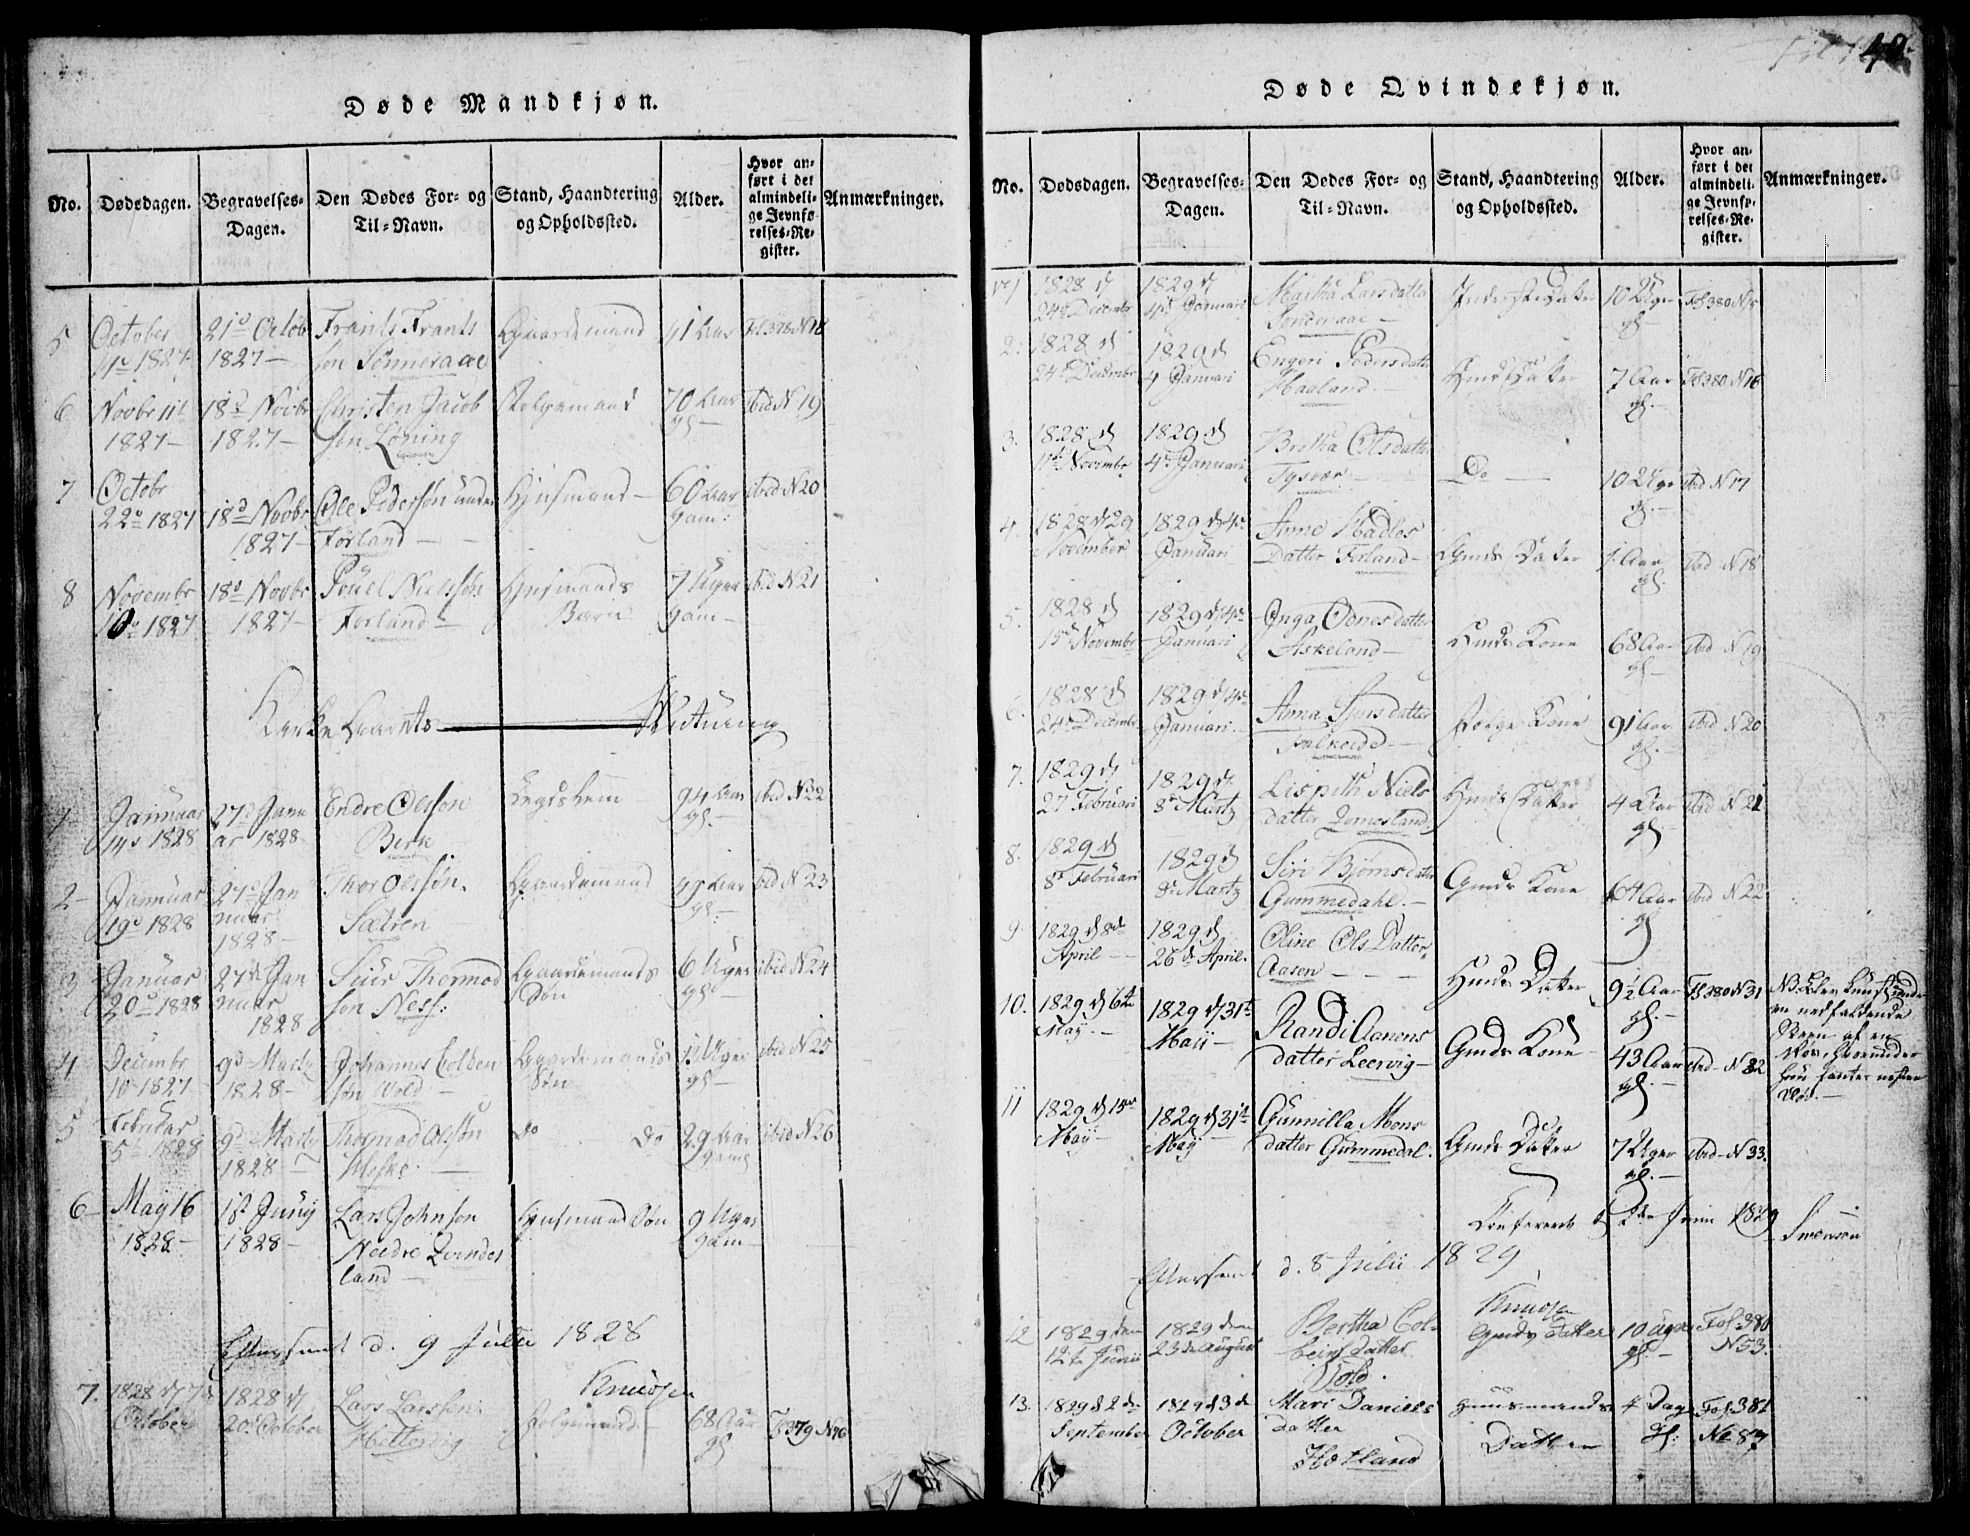 40.
Døde Mandkjøn.
No. Dødsdagen. Begravelses-Dagen. Den Dødes For- og Til-Navn. Stand, Haandtering og Opholdssted. Alder. Hvor anført i det almindelige Jevnførelses-Register. Anmærkninger.
5 October 1827 21d Octob 1827 Frants Frants
søn Sønneraae Gaardemand 41 Aar Fol 378 N 18
6 Novbr 11t 1827 18d Novbr 1827 Christen Jacob
søn Løning 70 Aar gl ibid N 19
7 Octobr 22d 1827 18d Novbr 1827 Ole Pedersøn under
Førland Huusmand 60 Aar gam: ibid N 20
8 Novembr 10d 1827 18d Novbr 1827 Pouel Nielssøn
Førland Huusmands Barn 7 Uger gam ibid N 21
Kirke Aarets Slutning
1 Januar 14d 1828 27d Januar 1828 Endre Olssøn
Birke Legdslem 94 Aar gl. ibid N 22
2 Januar 19d 1828 27d Januar 1828 Thor Olssøn
Sætren Gaardemand Aar gl. ibid N 23
3 Januar 20d 1828 27d Januar 1828 Siur Thormod
søn Ness: Gaardemands Søn 6 Uger gl ibid N 24
4 Decembr 1827 9d Martz 1828 Johannes Colben
søn Vold Gaardemands Søn 12 Uger gl ibid N 25
5 Februar 5d 1828 9d Martz 1828 Thormod Olssøn
do do 29 Aar gaml ibid N 26
6 May 16 1828 1st Junij 1828 Lars Johnsøn
Nedre Qvindes
land Huusmand Søn 9 Uger gam
Efterseet d. 9 Julii 1828
Knudsen
7. 1828 d 7de October 1828 d 20de October Lars Larssøn
Hettervig 68 Aar gl F 379 N 16
Døde Qvindekjøn.
No. Dødsdagen. Begravelses-Dagen. Den Dødes For- og Til-Navn. Stand, Haandtering og Opholdssted. Alder. Hvor anført i det almindelige Jevnførelses-Register. Anmærkninger.
1 1828 d 24de Decembr 1829 d 4de Januari Martha Larsdatter
Sønderaae Datter 10 Uger gl Fol 380 N 15
2. 1828 d 24 Decembr 1829 d 4 Januari Engeri Pedersdatter
Haaland Datter 7 Aar gl. Fol 380 N 16
3. 1828 d 11te Novembr 1829 d 4de Januari Britha Olsdatter
Tysvær Do 10 Uger gl. ibid N 17
4. 1828 d 29 November 1829 d 4de Januari Anne Madles
Datter Førland Gmds Datter 1 Aar gl. ibid N 18
5. 1828 d 15de Novembr 1829 d 4de Januari Inga Odnesdatter
Askeland Hmds Kone 68 Aar gl ibid N 19
6. 1828 d 24de Decembr 1829 d 4de Januari Anna Siursdatter
Falkeide Kone 91 Aar gl. ibid N 20
7. 1829 d 27 Februari 1829 d 8de Martz Lispeth Niels
datter Qvinesland Hmds Datter 4 Aar gl ibid N 21
8. 1829 d 8de Februari 1829 d 8de Martz Siri Bjørnsdatter
Gummedahl. Gmds Kone 64 Aar gl ibid N 22
9 1829 d 8de April 1829 d 26de April. Oline Ols Datter
Aasen Hmds Datter 9½ Aar gl. F 380 N 31 NB. blev knust under
en nedfaldende
Steen af en
10. 1829 d 6te May. 1829 d 31te Maii Randi Aanens
datter Leervig Gmds Kone 43 Aar gl. ibid N 32
11 1829 d 15de May 1829 d 31te May Gunnilla Mons
datter Gummedal. Gmds Datter 7 Uger gl. ibid N 33.
Confereret d 2den Junii 1829
Svensen
Eftersent d. 8 Julii 1829
Knudsen
12 1829 den 12te Junii 1829 den 23de August Bertha Col-
beins datter
Vold. Gmds Datter 10 Uger gl. Fol. 380 N 53.
13. 1829 d 2den September 1829 d 3de October Mari Daniels
datter
Hotland Huusmands Datter 4 Dage gl: Fol. 381 No 87